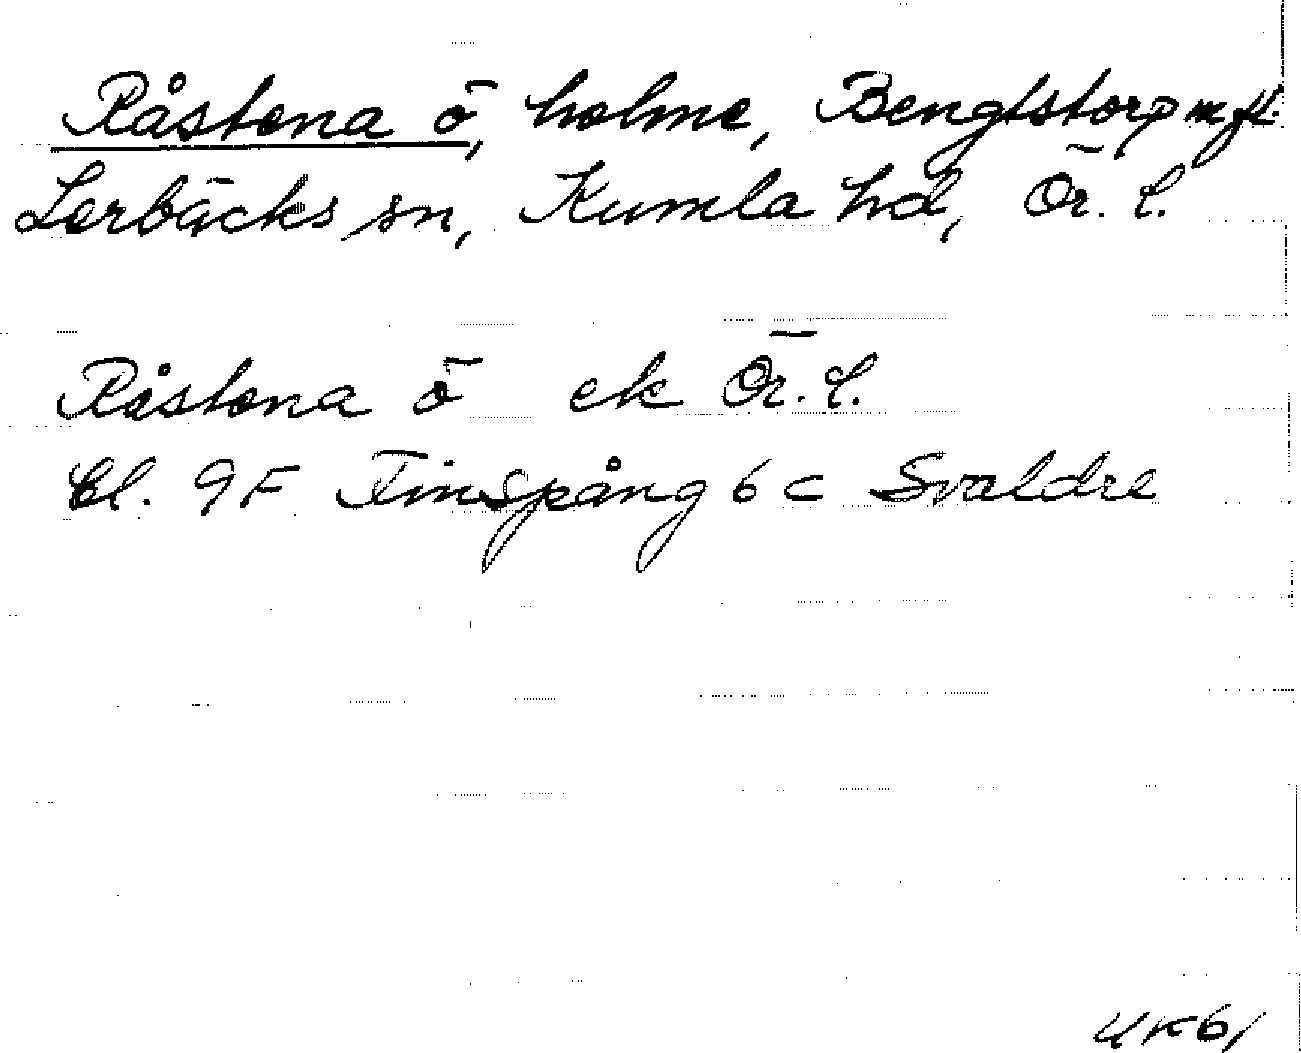 Råstena ö, holme, Bengtstorp m fl.
Lerbäcks sn, Kumla hd, Ör. l.
Råstena ö ek Ör. l.
Bl. 9F Finspång 6 c Svaldre
UK61